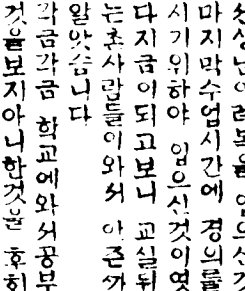 마지막수업시간에 경의를
시기위하야 입으신것이엿
다지금이되고보니 교실뒤
는촌사람들이와서
알앗습니다
각금각금 학교에와서공부
것을보지아니한것을 후회